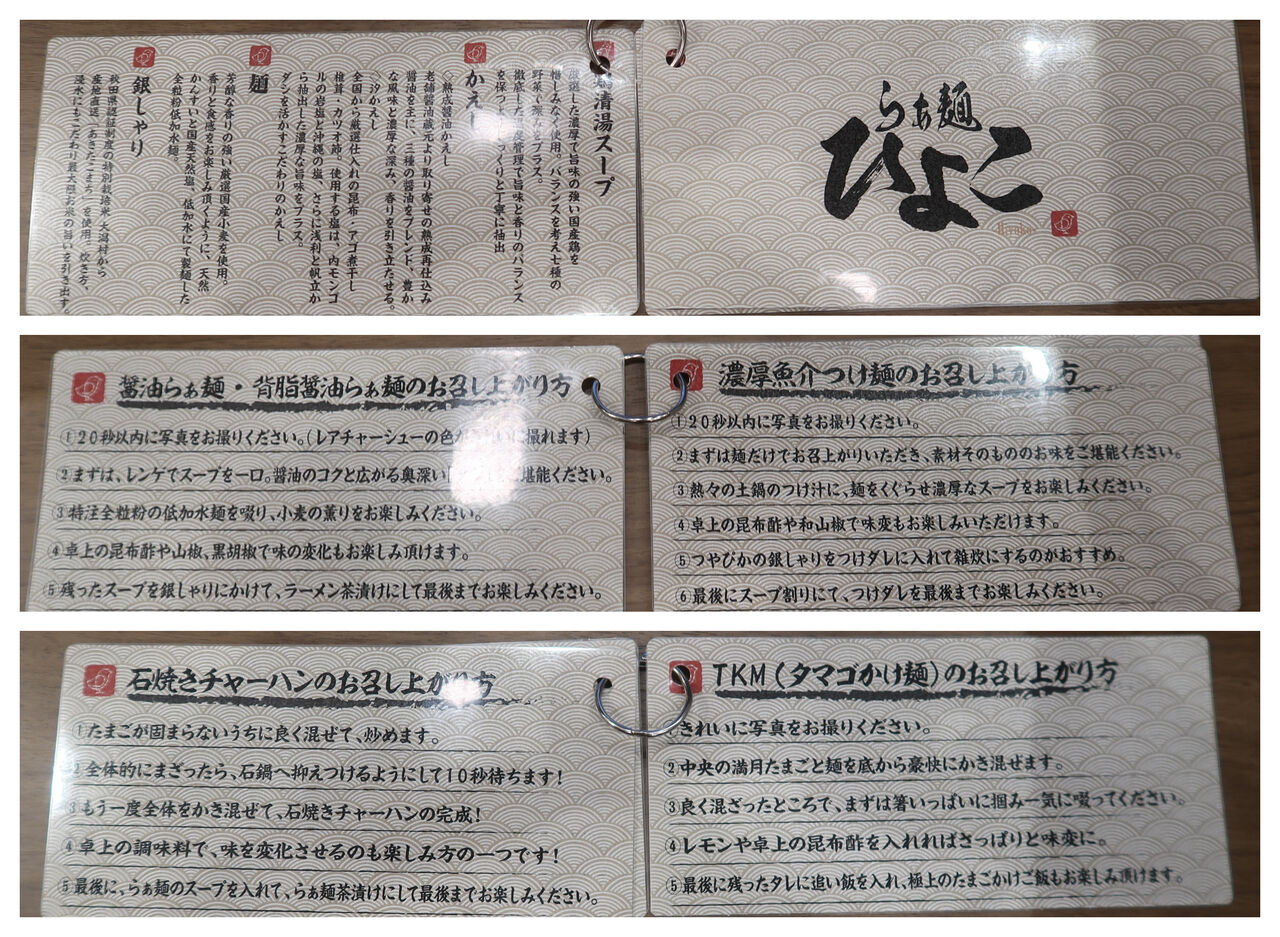 清湯スープ
厳選した濃厚で旨味の強い国産鶏を
惜しみなく使用。バランスを考え七種の
野菜で深みをプラス。
徹底した管理で旨味と香りのバランス
を保つ じっくりと丁寧に抽出
かえし
◇熟成醤油かえし
老舗醤油蔵元より取り寄せの熟成再仕込み
醤油を主に、三種の醤油をブレンド、豊か
な風味と濃厚な深み、香りを引き立たせる。
◇汐かえし
全国から厳選仕入れの昆布・アゴ煮干し
椎茸・カツオ節。使用する塩は、内モンゴ
ルの岩塩と沖縄の塩、さらに浅利と帆立か
ら抽出した濃厚な旨味をプラス。
ダシを活かすこだわりのかえし
麺
芳醇な香りの強い厳選国産小麦を使用。
香りと食感をお楽しみ頂くように、天然
かんすいと国産天然塩、低加水にて製麺した
全粒粉低加水麺。
銀しゃり
秋田県認証制度の特別栽培米 大潟村から
産地直送、「あきたこまち」を使用。炊き方、
浸水にもこだわり最大限お米の旨いを引き出す。
らぁ麺
ひよこ
Hiyoko
醤油らぁ麺・背脂醤油らぁ麺のお召し上がり方
①20秒以内に写真をお撮りください。(レアチャーシューの色が に撮れます)
②まずは、レンゲでスープを一口。醤油のコクと広がる奥深い 堪能ください。
③特注全粒粉の低加水麺を啜り、小麦の薫りをお楽しみください。
④卓上の昆布酢や山椒、黒胡椒で味の変化もお楽しみ頂けます。
⑤残ったスープを銀しゃりにかけて、ラーメン茶漬けにして最後までお楽しみください。
濃厚魚介つけ麺のお召し上がり方
①20秒以内に写真をお撮りください。
②まずは麺だけでお召上がりいただき、素材そのもののお味をご堪能ください。
③熱々の土鍋のつけ汁に、麺をくぐらせ濃厚なスープをお楽しみください。
④卓上の昆布酢や和山椒で味変もお楽しみいただけます。
⑤つやぴかの銀しゃりをつけダレに入れて雑炊にするのがおすすめ。
⑥最後にスープ割りにて、つけダレを最後までお楽しみください。
石焼きチャーハンのお召し上がり方
①たまごが固まらないうちに良く混ぜて、炒めます。
②全体的にまざったら、石鍋へ抑えつけるようにして10秒待ちます!
③もう一度全体をかき混ぜて、石焼きチャーハンの完成!
④卓上の調味料で、味を変化させるのも楽しみ方の一つです!
⑤最後に、らぁ麺のスープを入れて、らぁ麺茶漬けにして最後までお楽しみください。
TKM(タマゴかけ麺)のお召し上がり方
①きれいに写真をお撮りください。
②中央の満月たまごと麺を底から豪快にかき混ぜます。
③良く混ざったところで、まずは箸いっぱいに掴み一気に啜ってください。
④レモンや卓上の昆布酢を入れればさっぱりと味変に。
⑤最後に残ったタレに追い飯を入れ、極上のたまごかけご飯もお楽しみ頂けます。